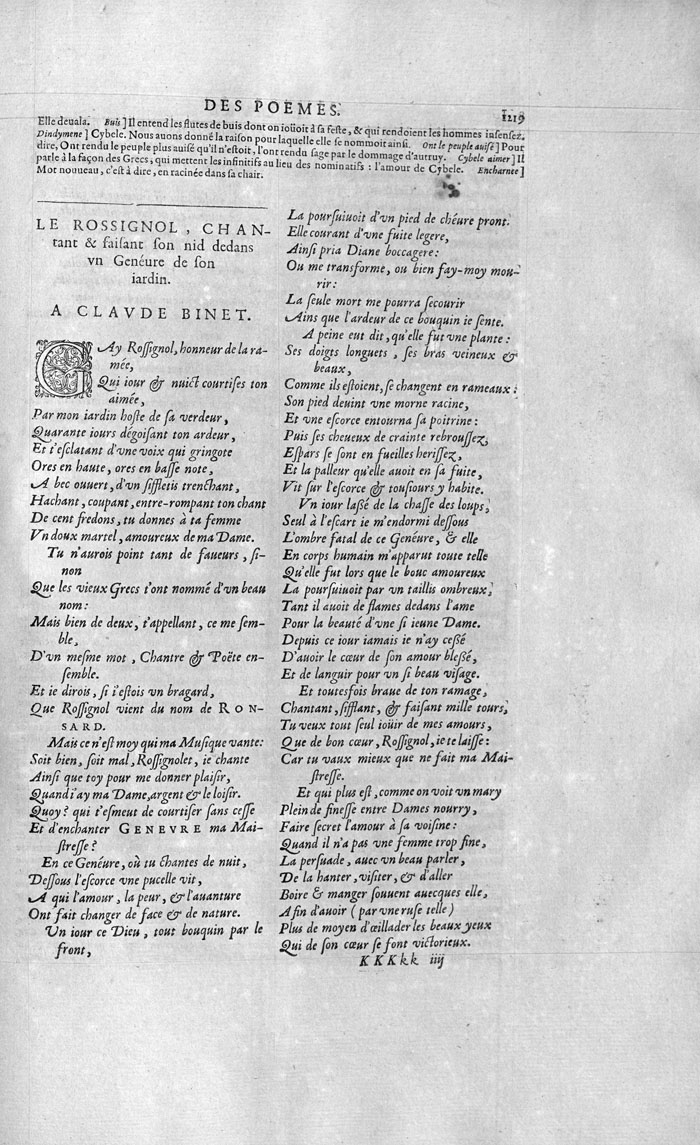 DES POEMES. 1219
Elle deuala. Buis] Il entend les flutes de buis dont on ioüoit à sa feste, & qui rendoient les hommes insensez.
Dindymene] Cybele. Nous auons donné la raison pour laquelle elle se nommoit ainsi. Ont le peuple auisé] Pour
dire, Ont rendu le peuple plus auisé qu'il n'estoit, l'ont rendu sage par le dommage d'autruy. Cybele aimer] Il
parle à la façon des Grecs, qui mettent les infinitifs au lieu des nominatifs : l'amour de Cybele. Encharnee]
Mot nouueau, c'est à dire, en racinée dans sa chair.
LE ROSSIGNOL, CHAN-
tant & faisant son nid dedans
vn Geneure de son
iardin.
A CLAVDE BINET.
GAy Rossignol, honneur de la ra-
mée,
Qui iour & nuict courtises ton
aimée,
Par mon iardin hoste de sa verdeur,
Quarante iours dégoisant ton ardeur,
Et t'esclatant d'vne voix qui gringote
Ores en haute, ores en basse note,
A bec ouuert, d'vn siffletis trenchant,
Hachant, coupant, entre-rompant ton chant
De cent fredons, tu donnes à ta femme
Vn doux martel, amoureux de ma Dame.
Tu n'aurois point tant de faueurs, si-
non
Que les vieux Grecs t'ont nommé d'vn beau
nom:
Mais bien de deux, t'appellant, ce me sem-
ble,
D'vn mesme mot, Chantre & Poëte en-
semble.
Et ie dirois, si i'estois vn bragard,
Que Rossignol vient du nom de RON-
SARD.
Mais ce n'est moy qui ma Musique vante:
Soit bien, soit mal, Rossignolet, ie chante
Ainsi que toy pour me donner plaisir,
Quand i'ay ma Dame, argent & le loisir.
Quoy? qui t'esmeut de courtiser sans cesse
Et d'enchanter GENEVRE ma Mai-
stresse?
En ce Genéure, où tu chantes de nuit,
Dessous l'escorce vne pucelle vit,
A qui l'amour, la peur, & l'auanture
Ont fait changer de face & de nature.
Vn iour ce Dieu, tout bouquin par le
front,
La poursuiuoit d'vn pied de chéure pront.
Elle courant d'vne fuite legere,
Ainsi pria Diane boccagere:
Ou me transforme, ou bien fay-moy mou-
rir:
La seule mort me pourra secourir
Ains que l'ardeur de ce bouquin ie sente.
A peine eut dit, qu'elle fut vne plante:
Ses doigts longuets, ses bras veineux &
beaux,
Comme ils estoient, se changent en rameaux:
Son pied deuint vne morne racine,
Et vne escorce entourna sa poitrine:
Puis ses cheueux de crainte rebroussez,
Espars se sont en fueilles herissez,
Et la palleur qu'elle auoit en sa fuite,
Vit sur l'escorce & tousiours y habite.
Vn iour lassé de la chasse des loups,
Seul à l'escart ie m'endormi dessous
L'ombre fatal de ce Genéure, & elle
En corps humain m'apparut toute telle
Qu'elle fut lors que le bouc amoureux
La poursuiuoit par vn taillis ombreux,
Tant il auoit de flames dedans l'ame
Pour la beauté d'vne si ieune Dame.
Depuis ce iour iamais ie n'ay cessé
D'auoir le cœur de son amour blessé,
Et de languir pour vn si beau visage.
Et toutesfois braue de ton ramage,
Chantant, sifflant, & faisant mille tours,
Tu veux tout seul ioüir de mes amours,
Que de bon cœur, Rossignol, ie te laisse:
Car tu vaux mieux que ne fait ma Mai-
stresse.
Et qui plus est, comme on voit vn mary
Plein de finesse entre Dames nourry,
Faire secret l'amour à sa voisine:
Quand il n'a pas vne femme trop fine,
La persuade, auec vn beau parler,
De la hanter, visiter, & d'aller
Boire & manger souuent auecques elle,
Afin d'auoir (par vne ruse telle)
Plus de moyen d'œillader les beaux yeux
Qui de son cœur se font victorieux.
KKKkk iiij